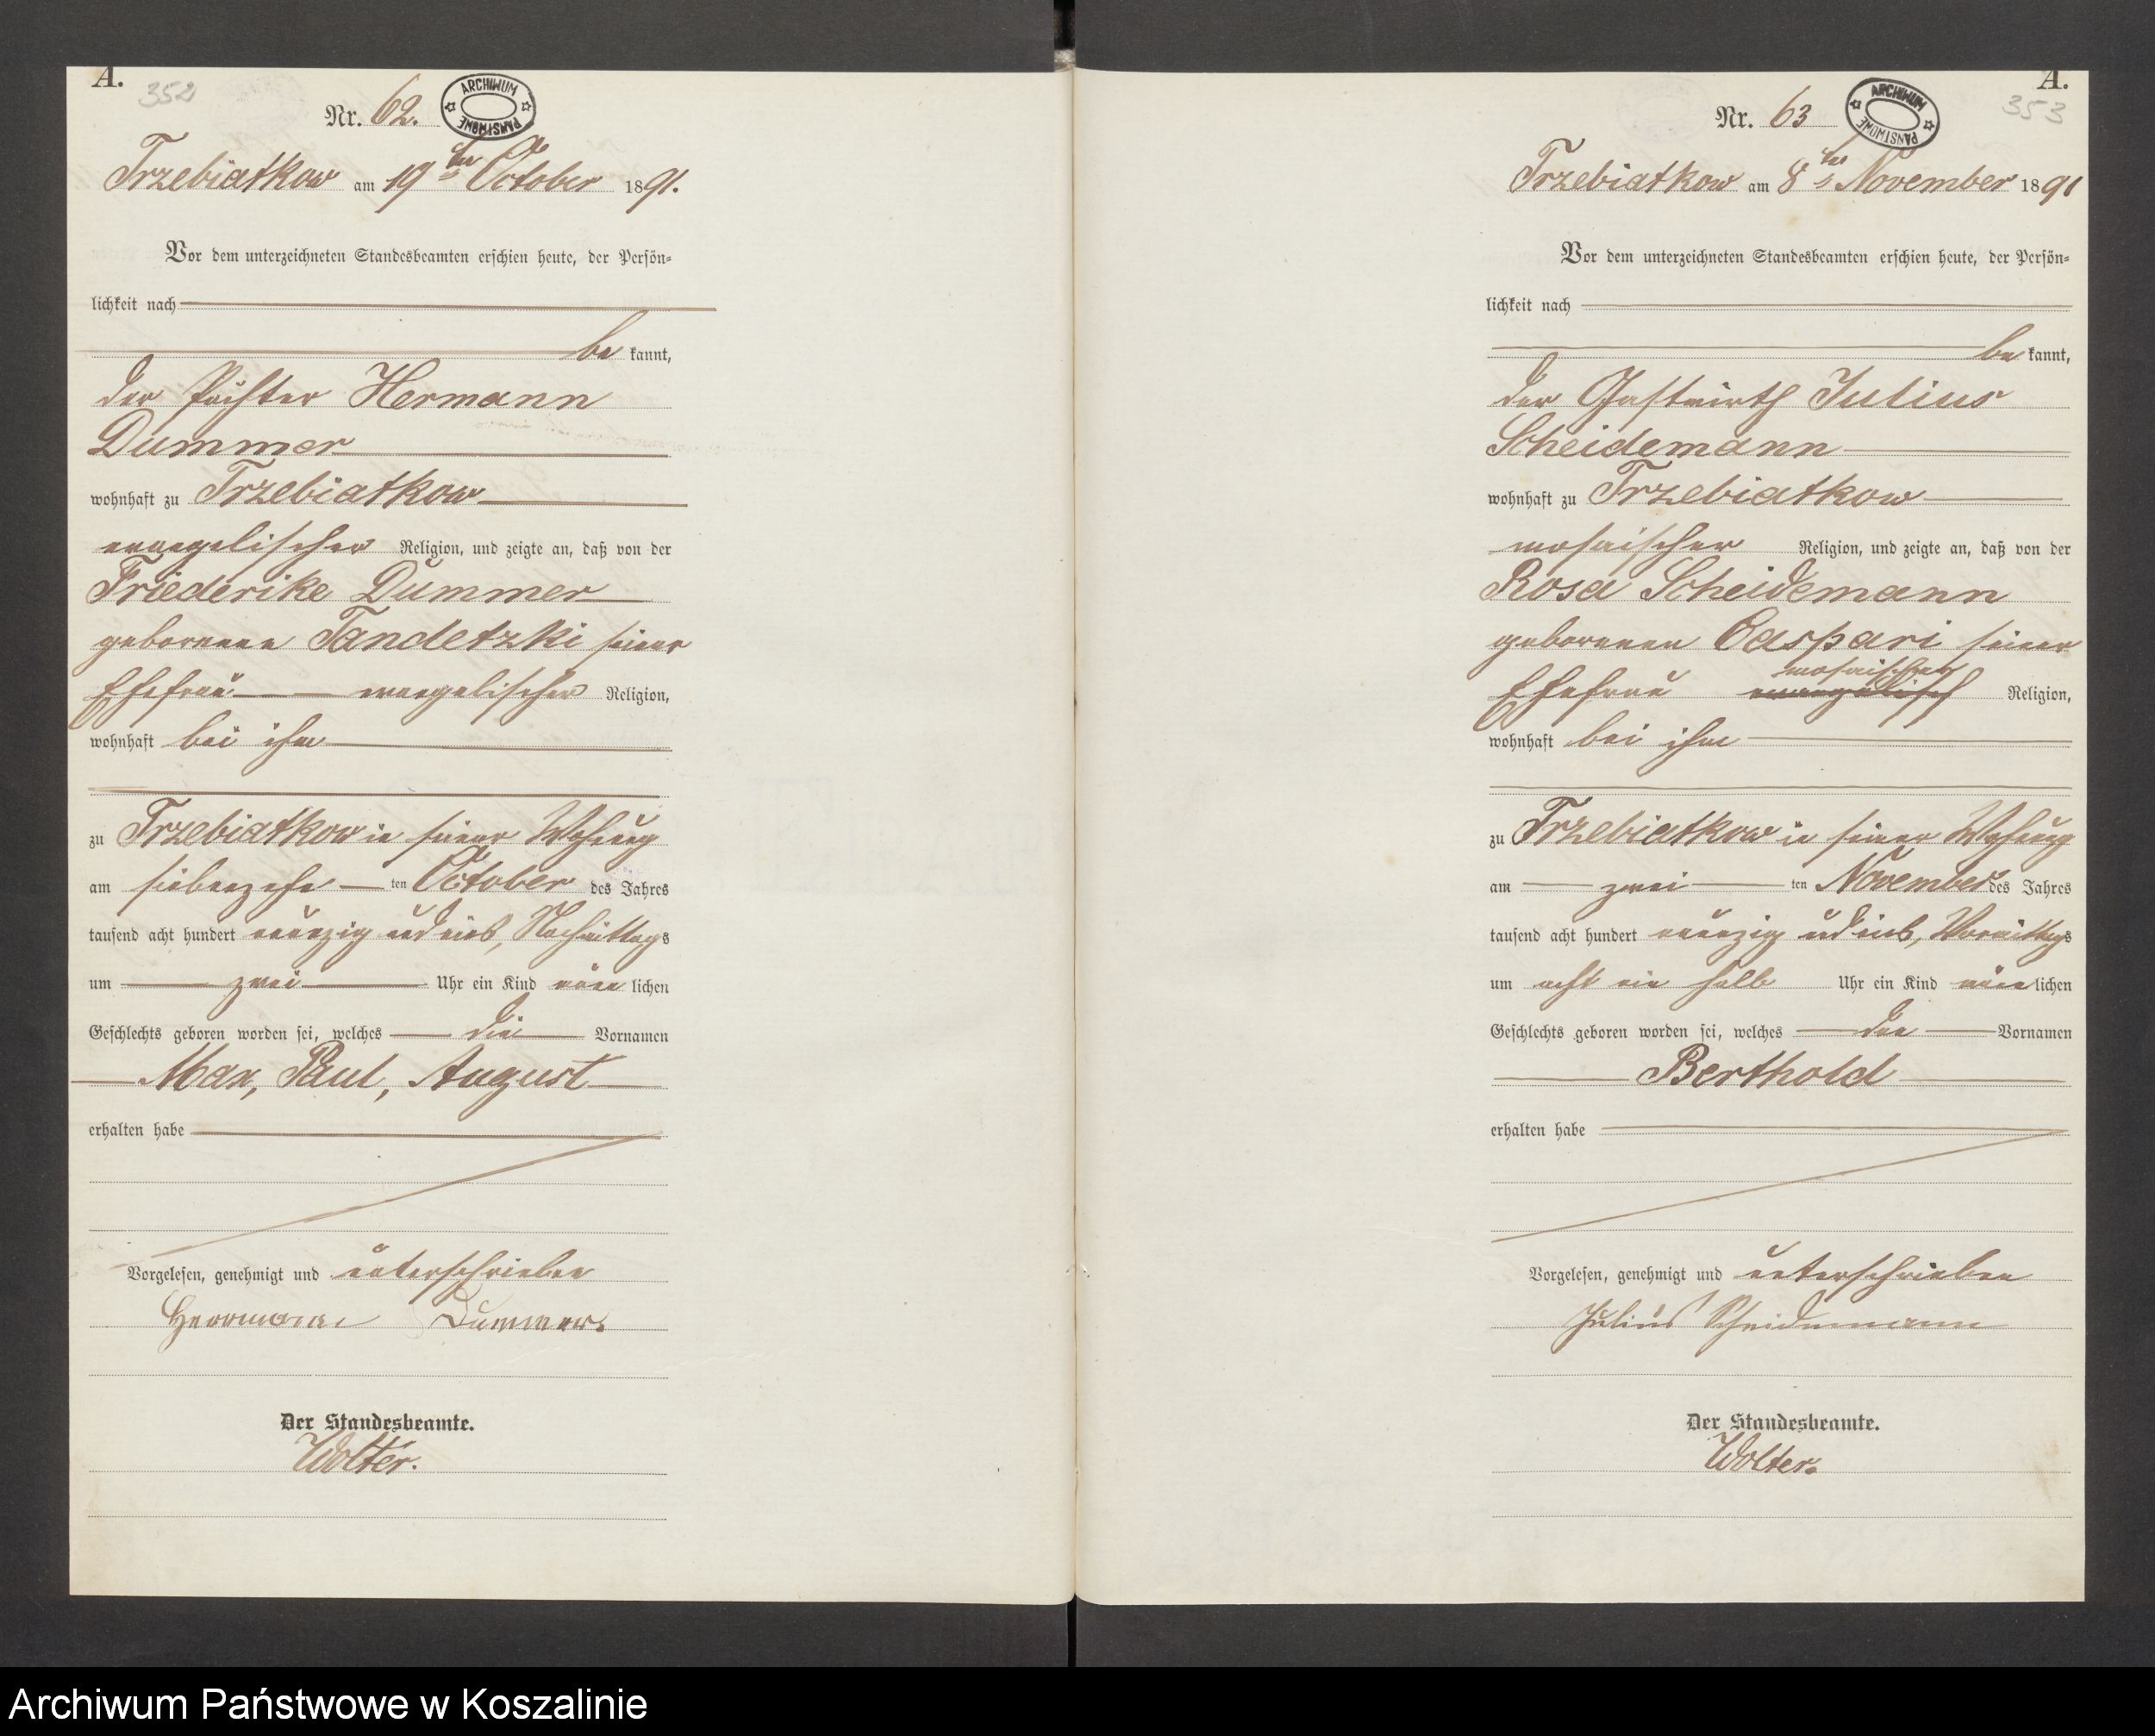 A.
352
Nr. 62.
ARCHIWUM PAŃSTWOWE
Trzebiatkow am 19ten October 1891.
Vor dem unterzeichneten Standesbeamten erschien heute, der Persön-
lichkeit nach
be kannt,
der Pächter Hermann
Dummer
wohnhaft zu Trzebiatkow
evangelischer Religion, und zeigte an, daß von der
Friederike Dummer
geborenen Tandetzki seiner
Ehefrau evangelischer Religion,
wohnhaft bei ihm
zu Trzebiatkow in seiner Wohnung
am siebenzehn ten October des Jahres
tausend acht hundert neunzig und eins, Nachmittags
um zwei Uhr ein Kind männ lichen
Geschlechts geboren worden sei, welches die Vornamen
Max, Paul, August
erhalten habe
Vorgelesen, genehmigt und unterschrieben
Herrmann Dummer.
Der Standesbeamte.
Wolter.
A.
353
Nr. 63
ARCHIWUM PAŃSTWOWE
Trzebiatkow am 8ten November 1891
Vor dem unterzeichneten Standesbeamten erschien heute, der Persön-
lichkeit nach
be kannt,
der Gastwirth Julius
Scheidemann
wohnhaft zu Trzebiatkow
mosaischer Religion, und zeigte an, daß von der
Rosa Scheidemann
geborenen Caspari seiner
mosaischer
Ehefrau evangelisch Religion,
wohnhaft bei ihm
zu Trzebiatkow in seiner Wohnung
am zwei ten November des Jahres
tausend acht hundert neunzig und eins, Vormittags
um acht ein halb Uhr ein Kind männ lichen
Geschlechts geboren worden sei, welches den Vornamen
Berthold
erhalten habe
Vorgelesen, genehmigt und unterschrieben
Julius Scheidemann
Der Standesbeamte.
Wolter.
Archiwum Państwowe w Koszalinie